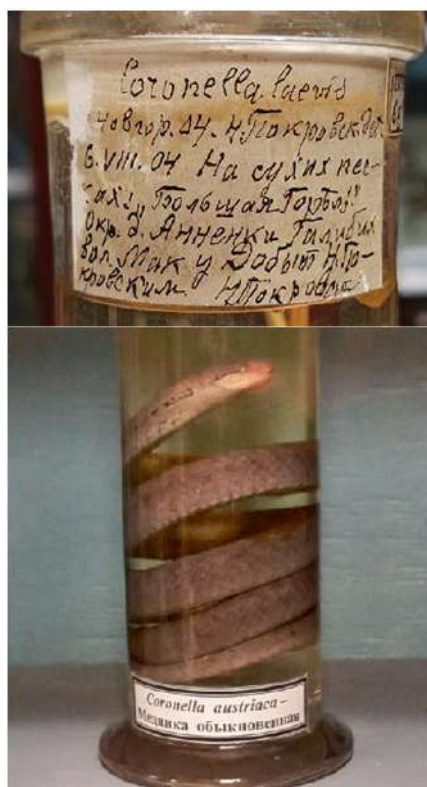 Coronella laevis
Новгор. 04. Н. Покровск
6. VIII. 04 На сухих пес-
ках „Большая
окр. д. Анненки
Добыт Н. По-
кровским Н. Покровск
Coronella austriaca –
Медянка обыкновенная